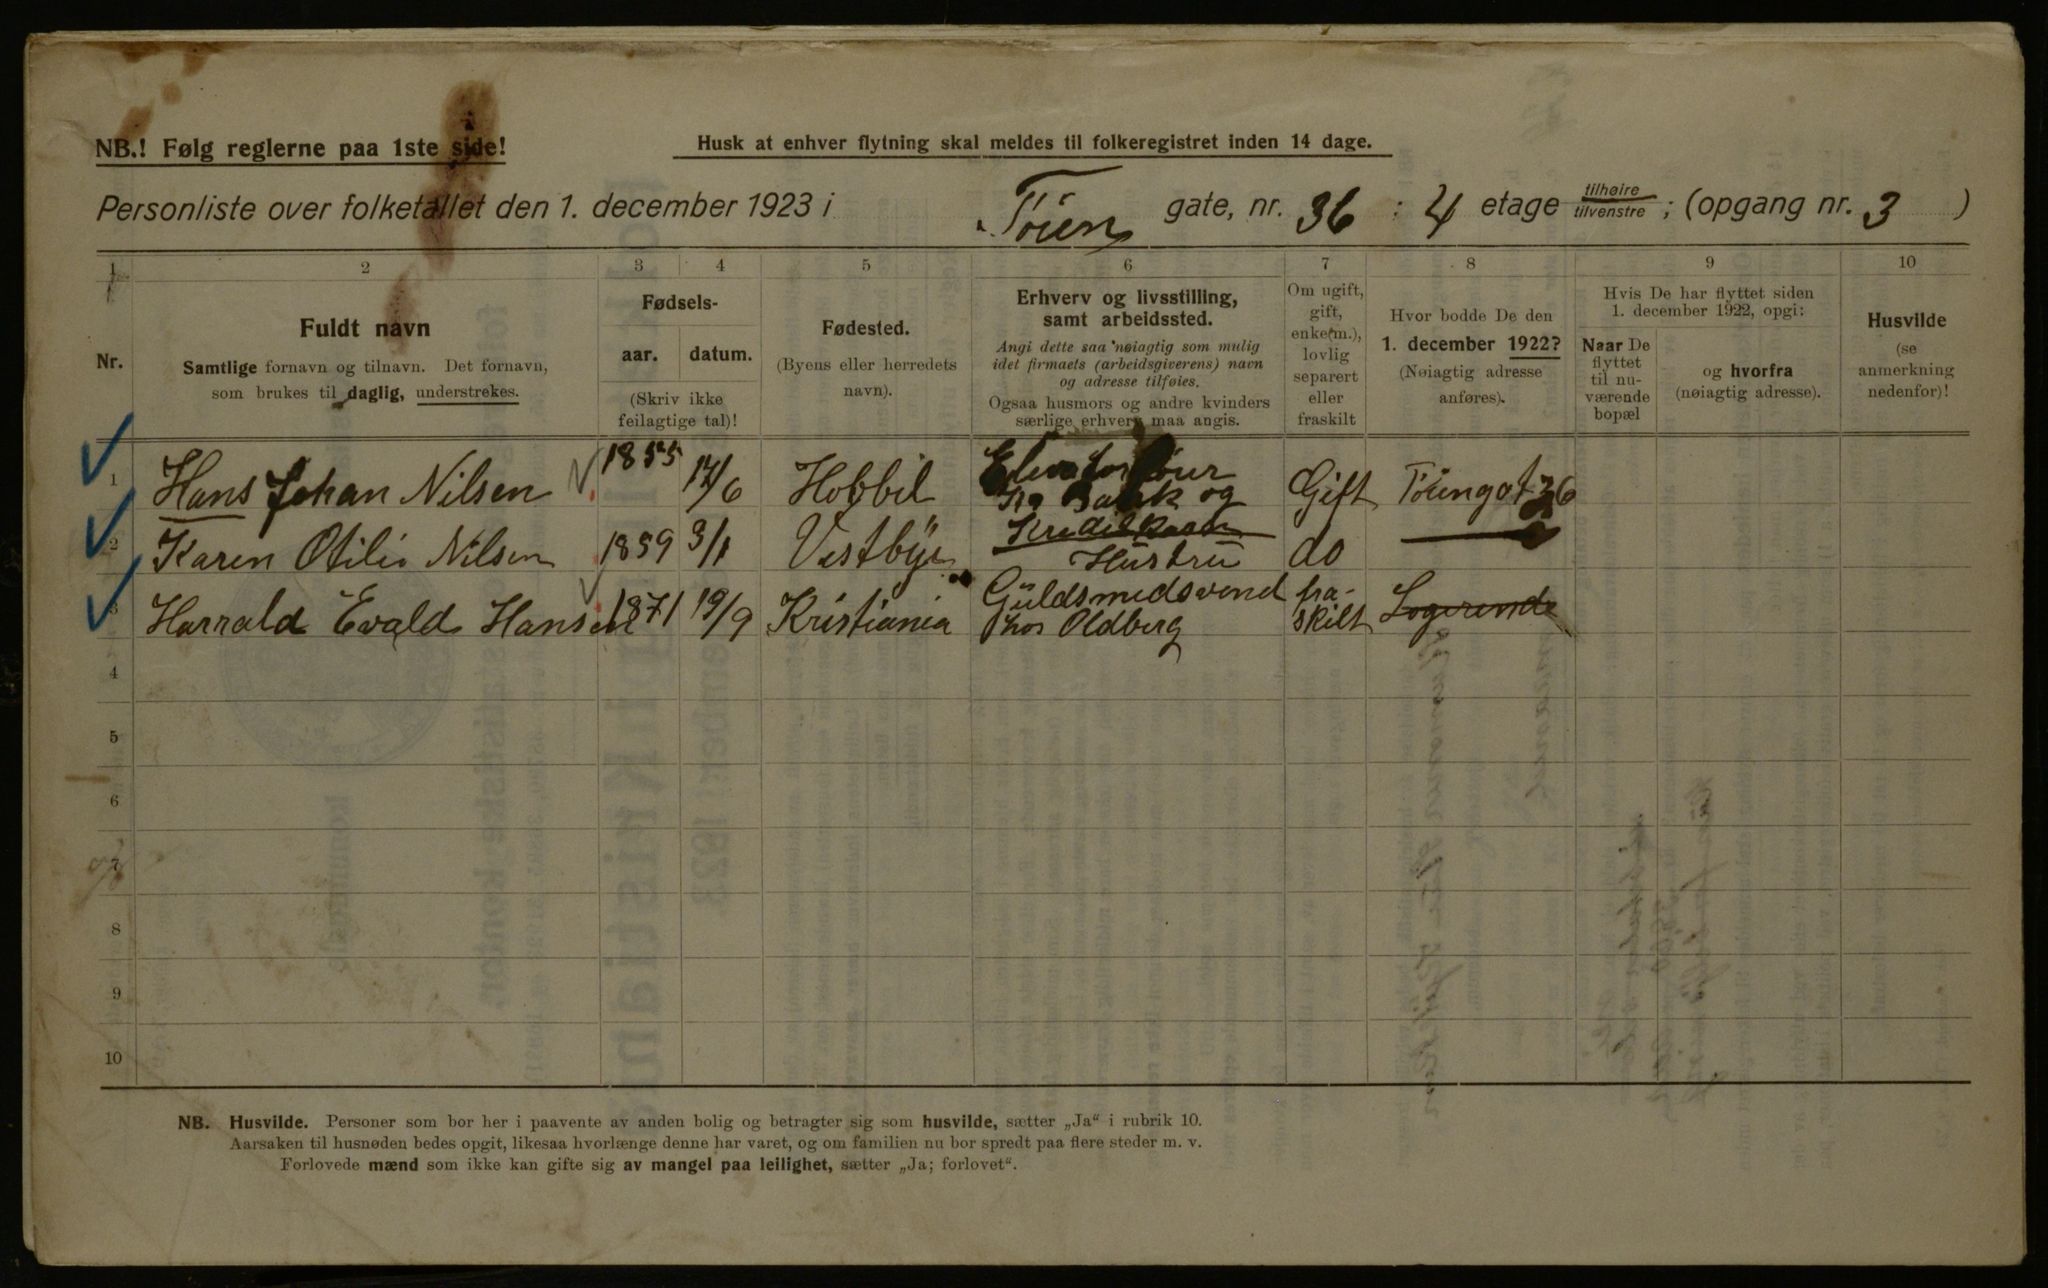 NB.! Følg reglerne paa 1ste side!
Husk at enhver flytning skal meldes til folkeregistret inden 14 dage.
Personliste over folketallet den 1. december 1923 i Tøien gate, nr. 36 : 4 etage tilhøire tilvenstre ; (opgang nr. 3 )
1 2 3 4 5 6 7 8 9 10
Nr.
Fuldt navn
Samtlige fornavn og tilnavn. Det fornavn,
som brukes til daglig, understrekes.
Fødsels-
aar. datum.
(Skriv ikke
feilagtige tal)!
Fødested.
(Byens eller herredets
navn).
Erhverv og livsstilling,
samt arbeidssted.
Angi dette saa nøiagtig som mulig
idet firmaets (arbeidsgiverens) navn
og adresse tilføies.
Ogsaa husmors og andre kvinders
særlige erhverv maa angis.
Om ugift,
gift,
enke(m.),
lovlig
separert
eller
fraskilt
Hvor bodde De den
1. december 1922?
(Nøiagtig adresse
anføres).
Hvis De har flyttet siden
1. december 1922, opgi:
Naar De
flyttet
til nu-
værende
bopæl
og hvorfra
(nøiagtig adresse).
Husvilde
(se
anmerkning
nedenfor)!
1 Hans Johan Nilsen 1855 17/6 Hobbil og Gift Tøiengat 36
2 Karen Otilie Nilsen 1859 3/1 Vestbÿe Hustru do
3 Harrald Evald Hansen 1871 19/9 Kristiania Guldsmedsvend hos Oldberg fra-skilt Logerende
4
5
6
7
8
9
10
NB. Husvilde. Personer som bor her i paavente av anden bolig og betragter sig som husvilde, sætter „Ja“ i rubrik 10.
Aarsaken til husnøden bedes opgit, likesaa hvorlænge denne har varet, og om familien nu bor spredt paa flere steder m. v.
Forlovede mænd som ikke kan gifte sig av mangel paa leilighet, sætter „Ja; forlovet“.